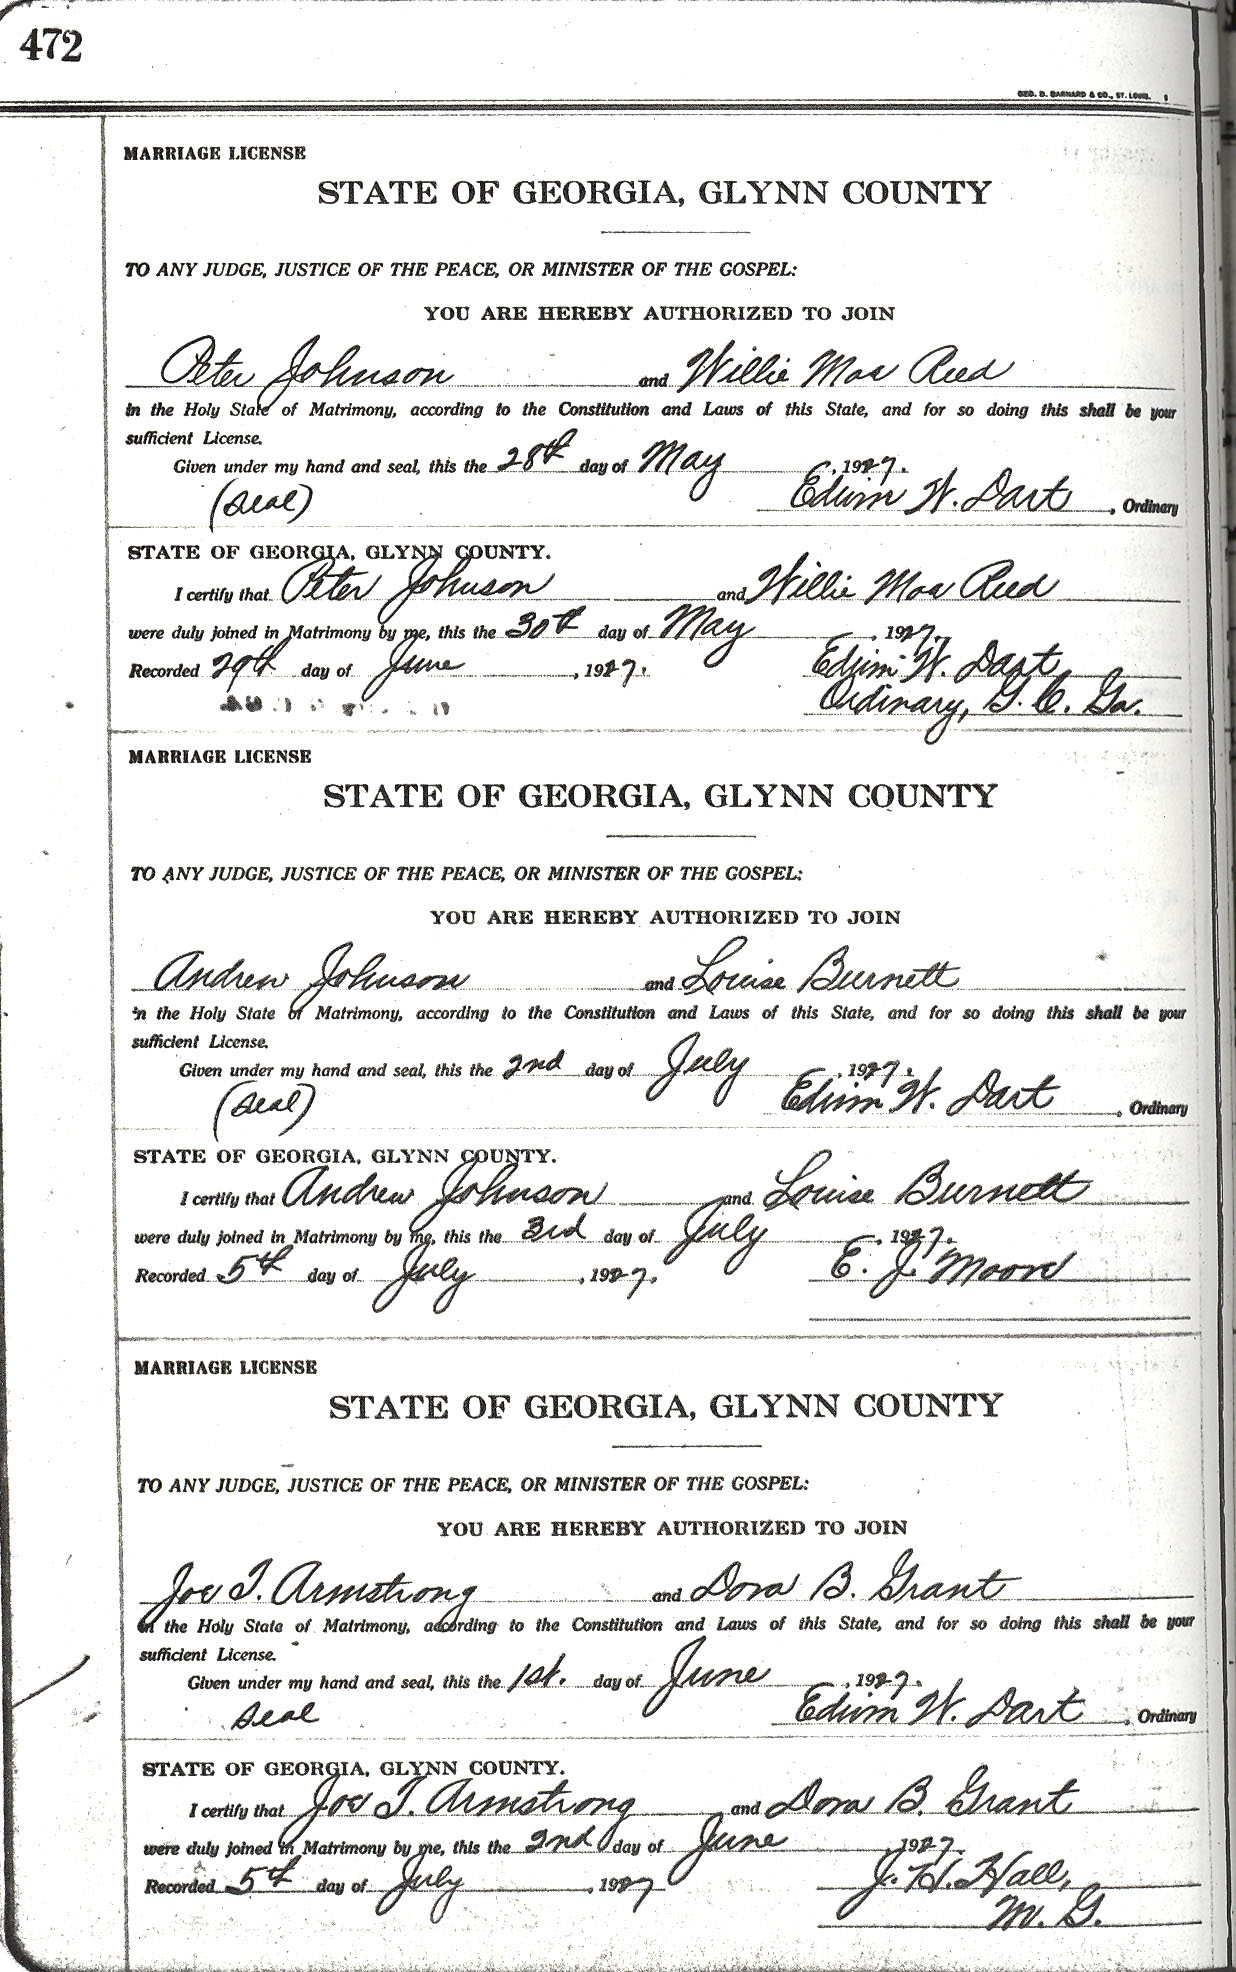 472
GEO. D. BARNARD & CO., ST. LOUIS.
MARRIAGE LICENSE
STATE OF GEORGIA, GLYNN COUNTY
TO ANY JUDGE, JUSTICE OF THE PEACE, OR MINISTER OF THE GOSPEL:
YOU ARE HEREBY AUTHORIZED TO JOIN
Peter Johnson and Willie Mae Reed
in the Holy State of Matrimony, according to the Constitution and Laws of this State, and for so doing this shall be your
sufficient License.
Given under my hand and seal, this the 28th day of May, 1927.
(Seal) Edwin W. Dart, Ordinary
STATE OF GEORGIA, GLYNN COUNTY.
I certify that Peter Johnson and Willie Mae Reed
were duly joined in Matrimony by me, this the 30th day of May, 1927.
Recorded 29th day of June, 1927. Edwin W. Dart
Ordinary, G. C. Ga.
MARRIAGE LICENSE
STATE OF GEORGIA, GLYNN COUNTY
TO ANY JUDGE, JUSTICE OF THE PEACE, OR MINISTER OF THE GOSPEL:
YOU ARE HEREBY AUTHORIZED TO JOIN
Andrew Johnson and Louise Burnett
in the Holy State of Matrimony, according to the Constitution and Laws of this State, and for so doing this shall be your
sufficient License.
Given under my hand and seal, this the 2nd day of July, 1927.
(Seal) Edwin W. Dart, Ordinary
STATE OF GEORGIA, GLYNN COUNTY.
I certify that Andrew Johnson and Louise Burnett
were duly joined in Matrimony by me, this the 3rd day of July, 1927.
Recorded 5th day of July, 1927. E. J. Moore
MARRIAGE LICENSE
STATE OF GEORGIA, GLYNN COUNTY
TO ANY JUDGE, JUSTICE OF THE PEACE, OR MINISTER OF THE GOSPEL:
YOU ARE HEREBY AUTHORIZED TO JOIN
Joe T. Armstrong and Dora B. Grant
in the Holy State of Matrimony, according to the Constitution and Laws of this State, and for so doing this shall be your
sufficient License.
Given under my hand and seal, this the 1st. day of June, 1927.
Seal Edwin W. Dart, Ordinary
STATE OF GEORGIA, GLYNN COUNTY.
I certify that Joe T. Armstrong and Dora B. Grant
were duly joined in Matrimony by me, this the 2nd day of June, 1927.
Recorded 5th day of July, 1927 J. H. Hall,
M. G.